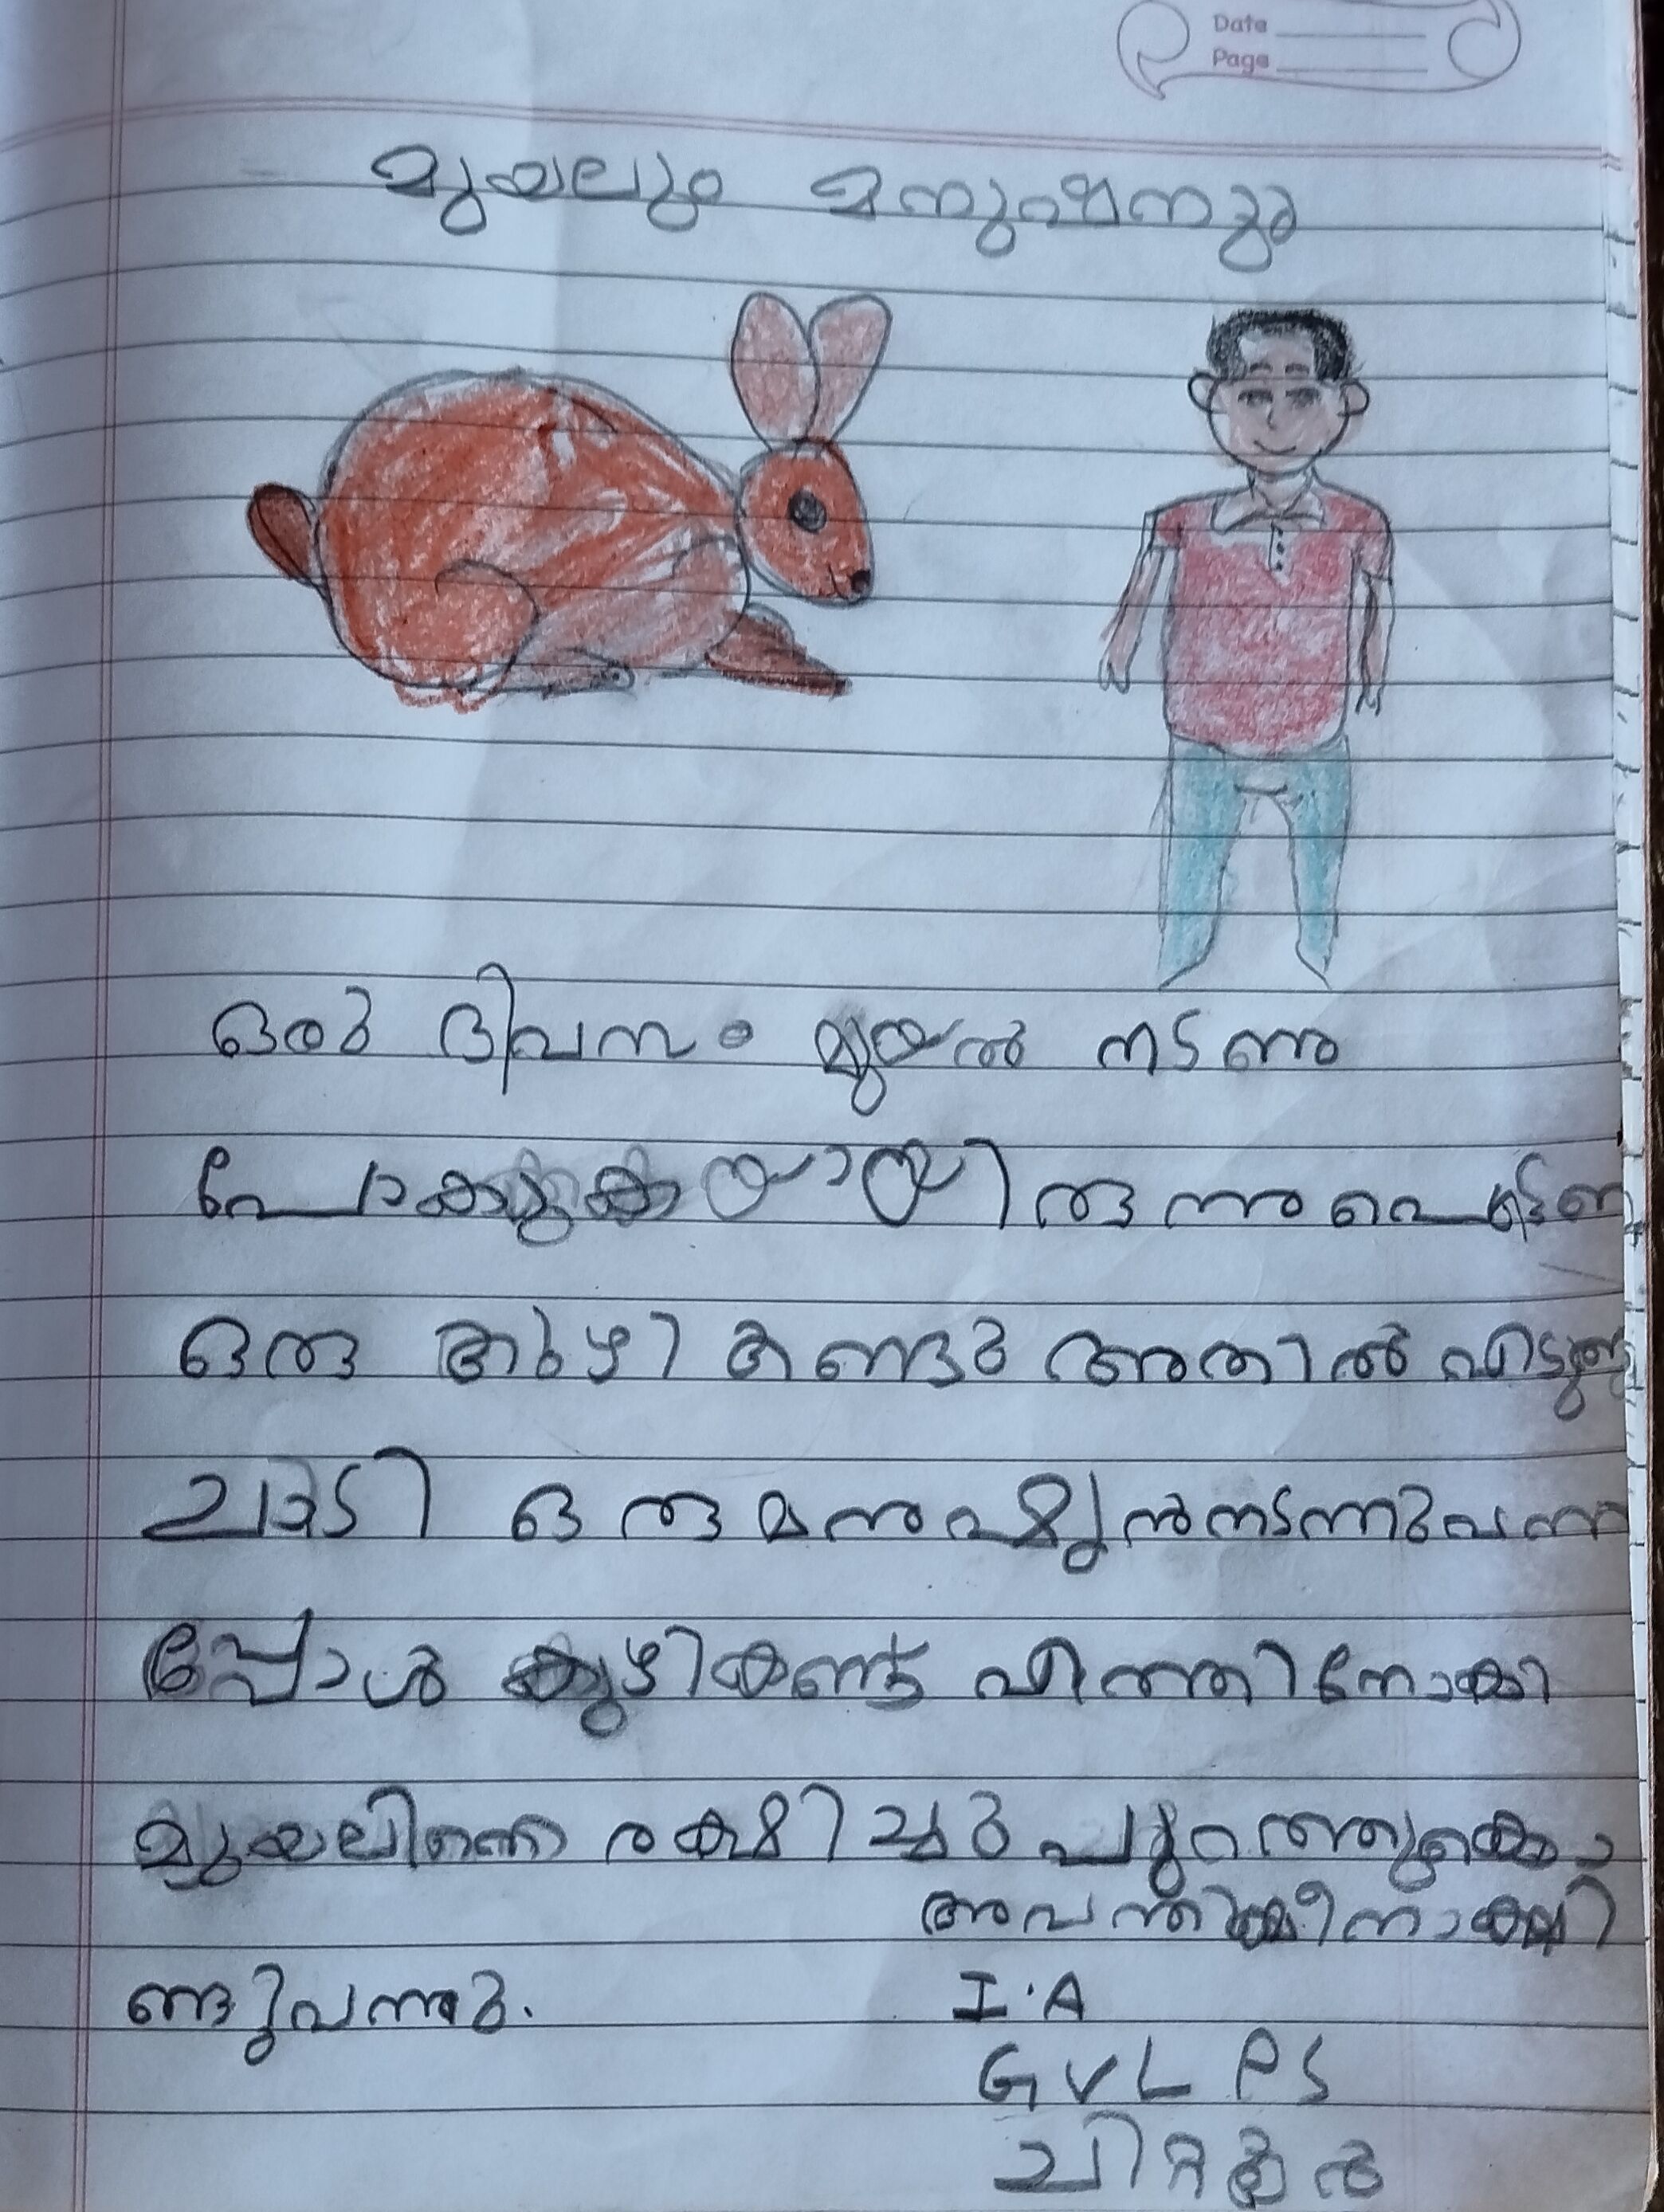 Date
Page
മുയലും മനുഷ്യനും
ഒരു ദിവസം മുയൽ നടന്നു
പോകുകയായിരുന്നു പെട്ടന്ന
ഒരു കുഴി കണ്ടു അതിൽ എടുത്തു
ചാടി ഒരു മനുഷ്യൻ നടന്നു വന്ന
പ്പോൾ കുഴി കണ്ടു എത്തി നോക്കി
മുയലിനെ രക്ഷിച്ചു പുറത്തുകൊ
ണ്ടുവന്നു.
അവന്തിക മീനാക്ഷി
I.A
G V L P S
ചിറ്റൂർ